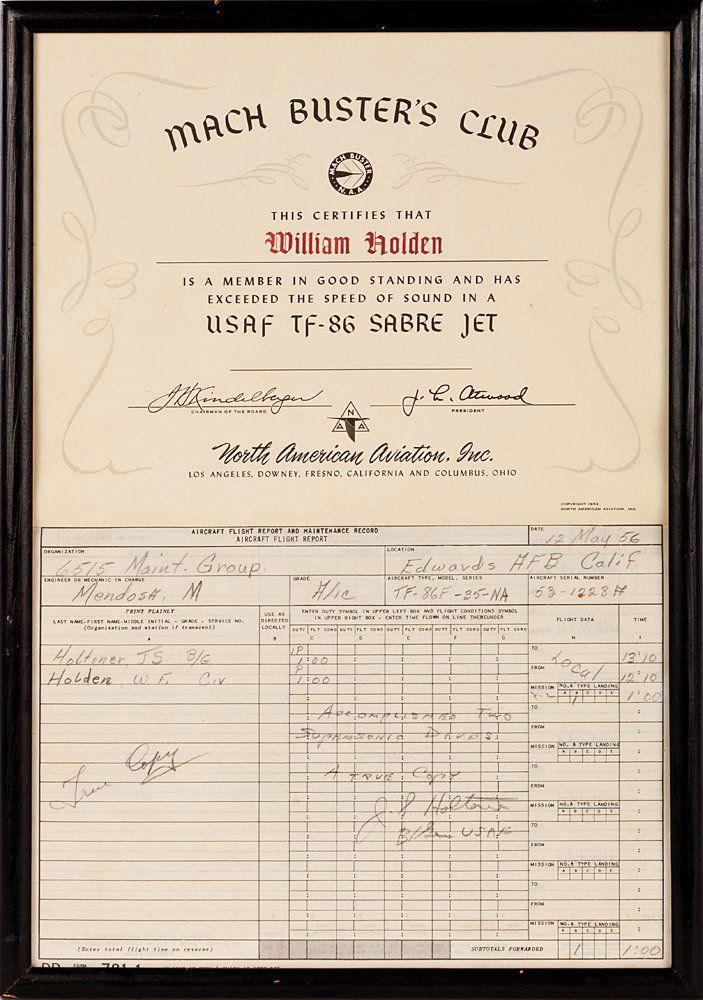 MACH BUSTER'S CLUB
MACH BUSTER
N.A.A.
THIS CERTIFIES THAT
William Holden
IS A MEMBER IN GOOD STANDING AND HAS
EXCEEDED THE SPEED OF SOUND IN A
USAF TF-86 SABRE JET
J H Kindelberger
J. L. Atwood
CHAIRMAN OF THE BOARD
PRESIDENT
N
A A
North American Aviation, Inc.
LOS ANGELES, DOWNEY, FRESNO, CALIFORNIA AND COLUMBUS, OHIO
COPYRIGHT 1954
NORTH AMERICAN AVIATION, INC.
AIRCRAFT FLIGHT REPORT AND MAINTENANCE RECORD
AIRCRAFT FLIGHT REPORT
DATE
12 May 56
ORGANIZATION
6515 Maint. Group.
LOCATION
Edwards AFB Calif
ENGINEER OR MECHANIC IN CHARGE
Mendosa, M
GRADE
A/1c
AIRCRAFT TYPE, MODEL, SERIES
TF-86F-35-NA
AIRCRAFT SERIAL NUMBER
53-1228#
PRINT PLAINLY
LAST NAME-FIRST NAME-MIDDLE INITIAL - GRADE - SERVICE NO.
(Organization and station if transient)
A
USE AS DIRECTED LOCALLY
B
ENTER DUTY SYMBOL IN UPPER LEFT BOX AND FLIGHT CONDITIONS SYMBOL
IN UPPER RIGHT BOX - ENTER TIME FLOWN ON LINE THEREUNDER
DUTY FLT COND DUTY FLT COND DUTY FLT COND DUTY FLT COND DUTY FLT COND
C D E F G
FLIGHT DATA
H
TIME
I
Holtoner, JS B/G
IP
1:00
TO
Local
13:10
Holden, W.F. Civ
P
1:00
FROM
12:10
MISSION
NO. & TYPE LANDING
A B C D E
1
1:00
Accomplished Two
TO
Supersonic Dives.
FROM
MISSION NO. & TYPE LANDING
A B C D E
True Copy
A True Copy
TO
FROM
J. S. Holtoner
MISSION NO. & TYPE LANDING
A B C D E
B/Gen USAF
TO
FROM
MISSION NO. & TYPE LANDING
A B C D E
TO
FROM
MISSION NO. & TYPE LANDING
A B C D E
(Enter total flight time on reverse)
SUBTOTALS FORWARDED
1
1:00